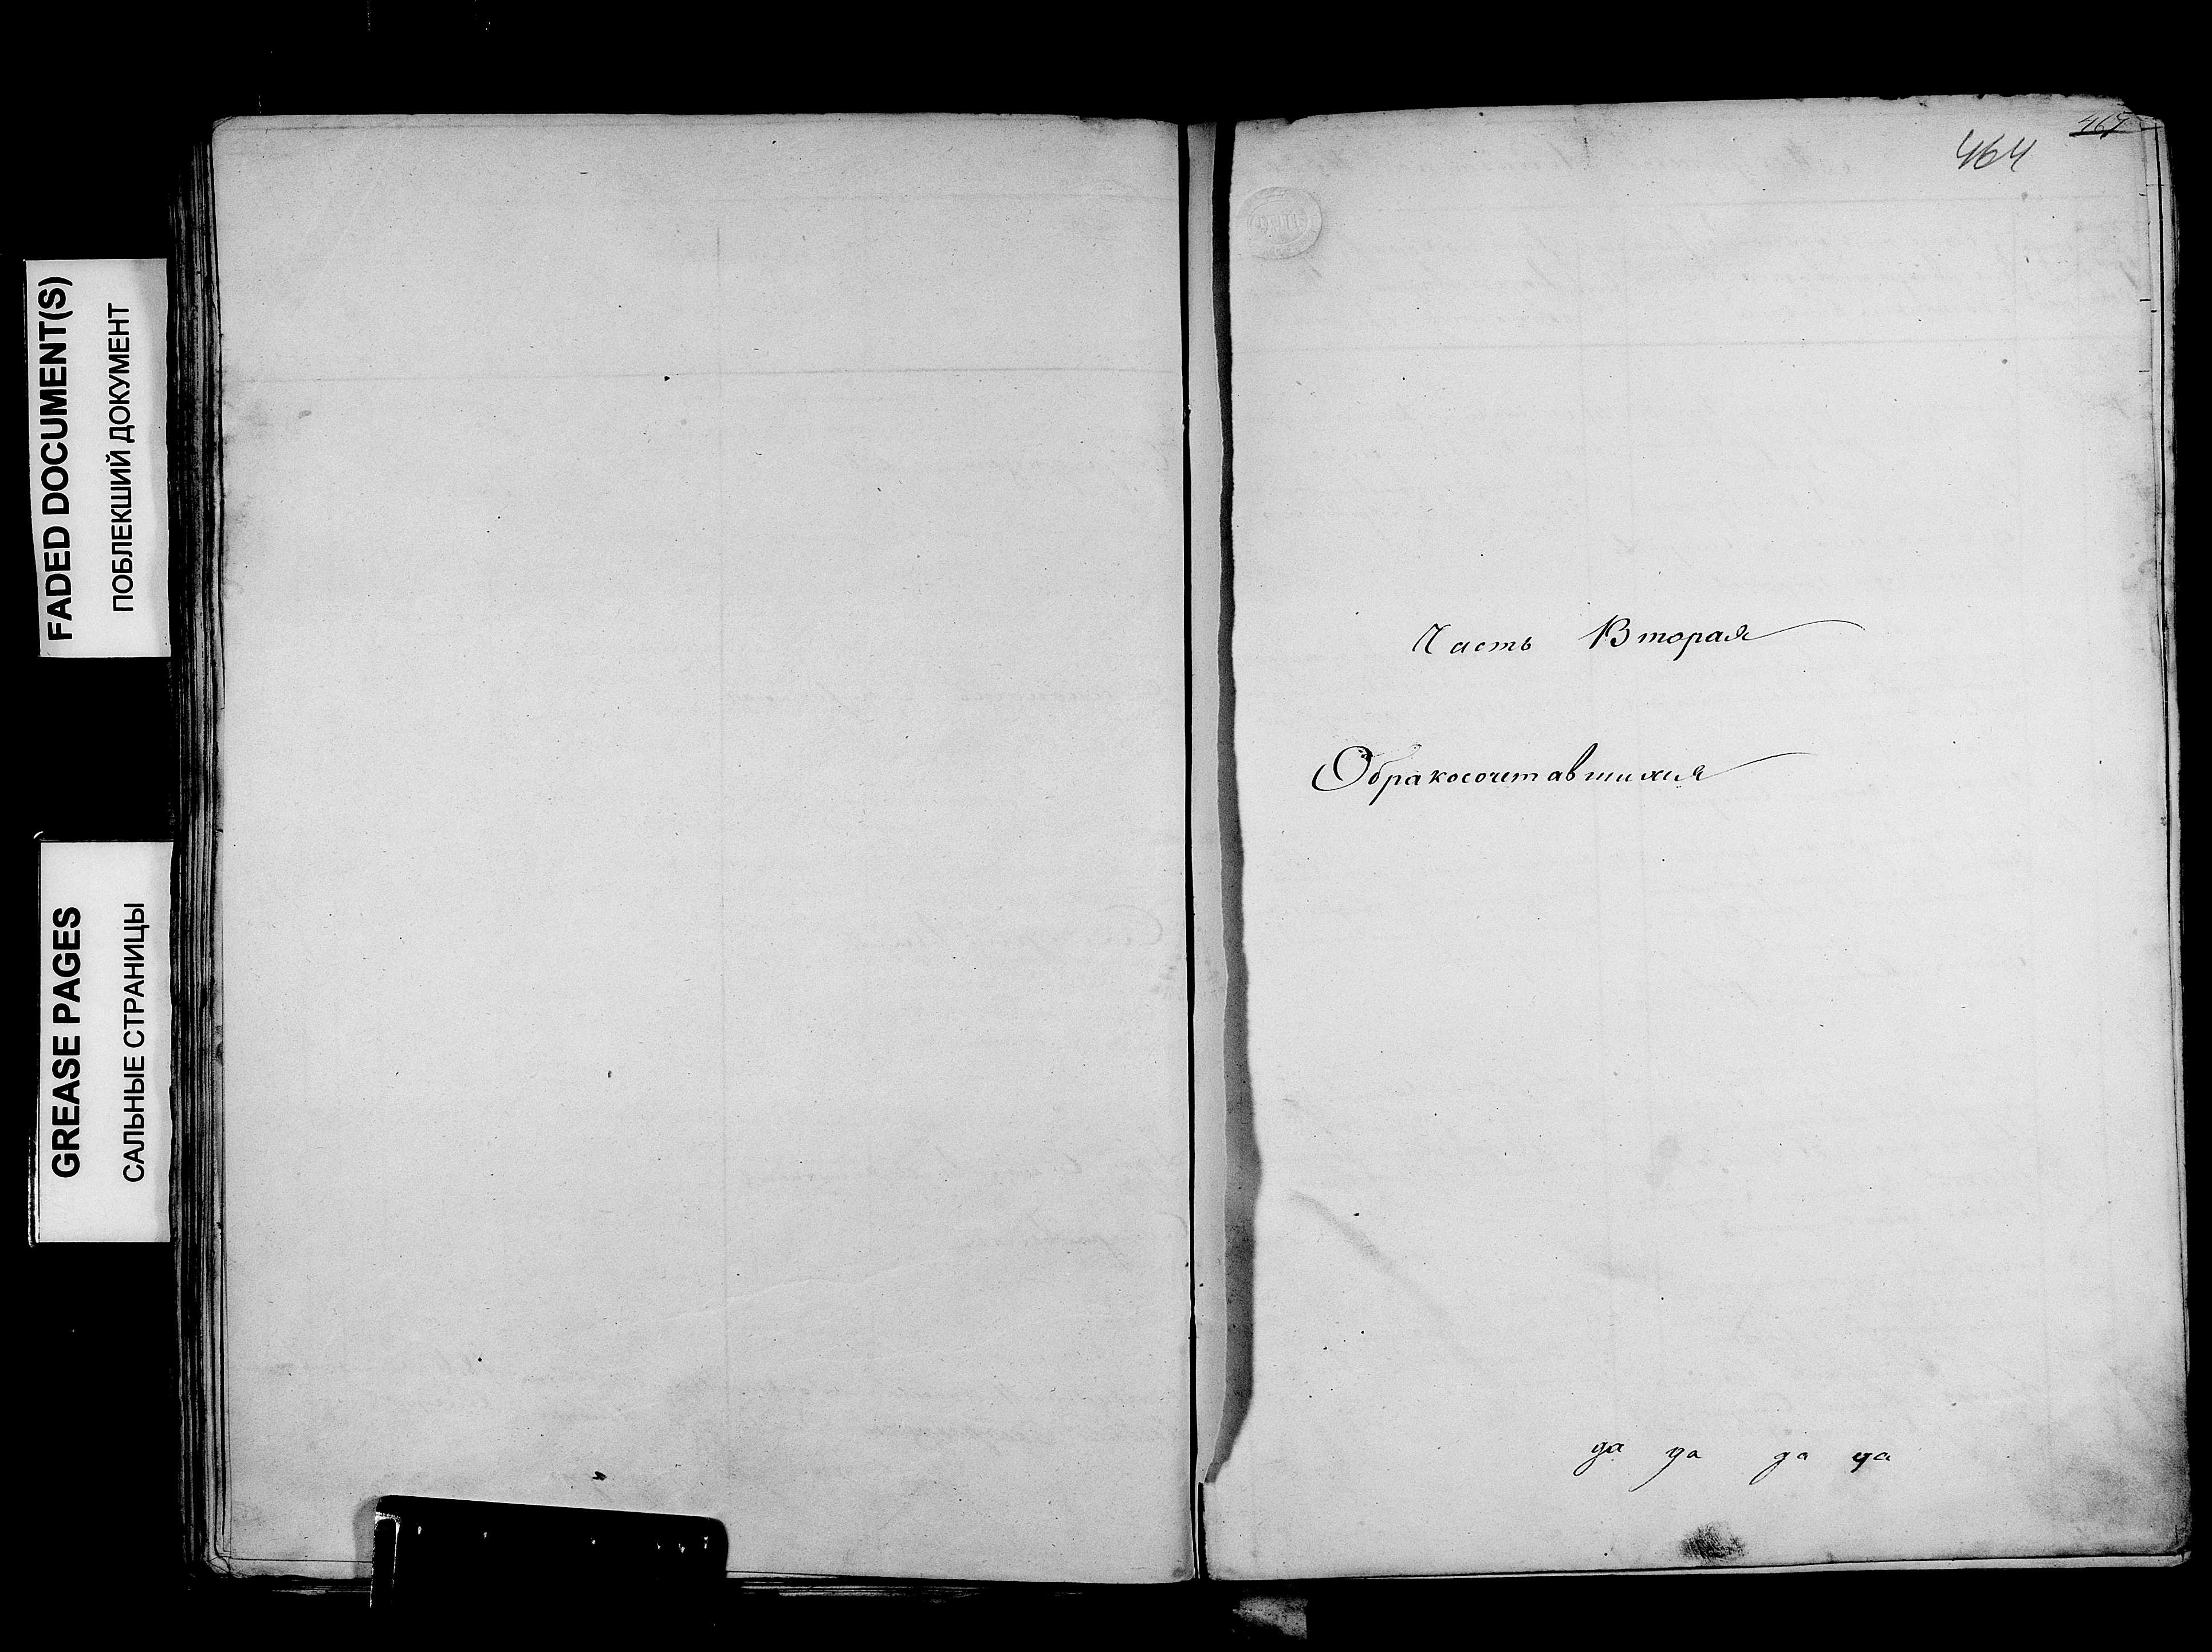 FADED DOCUMENT(S)
ПОБЛЕКШИЙ ДОКУМЕНТ
GREASE PAGES
САЛЬНЫЕ СТРАНИЦЫ
464
Часть Вторая
Обракосочетавшихся
да да да да